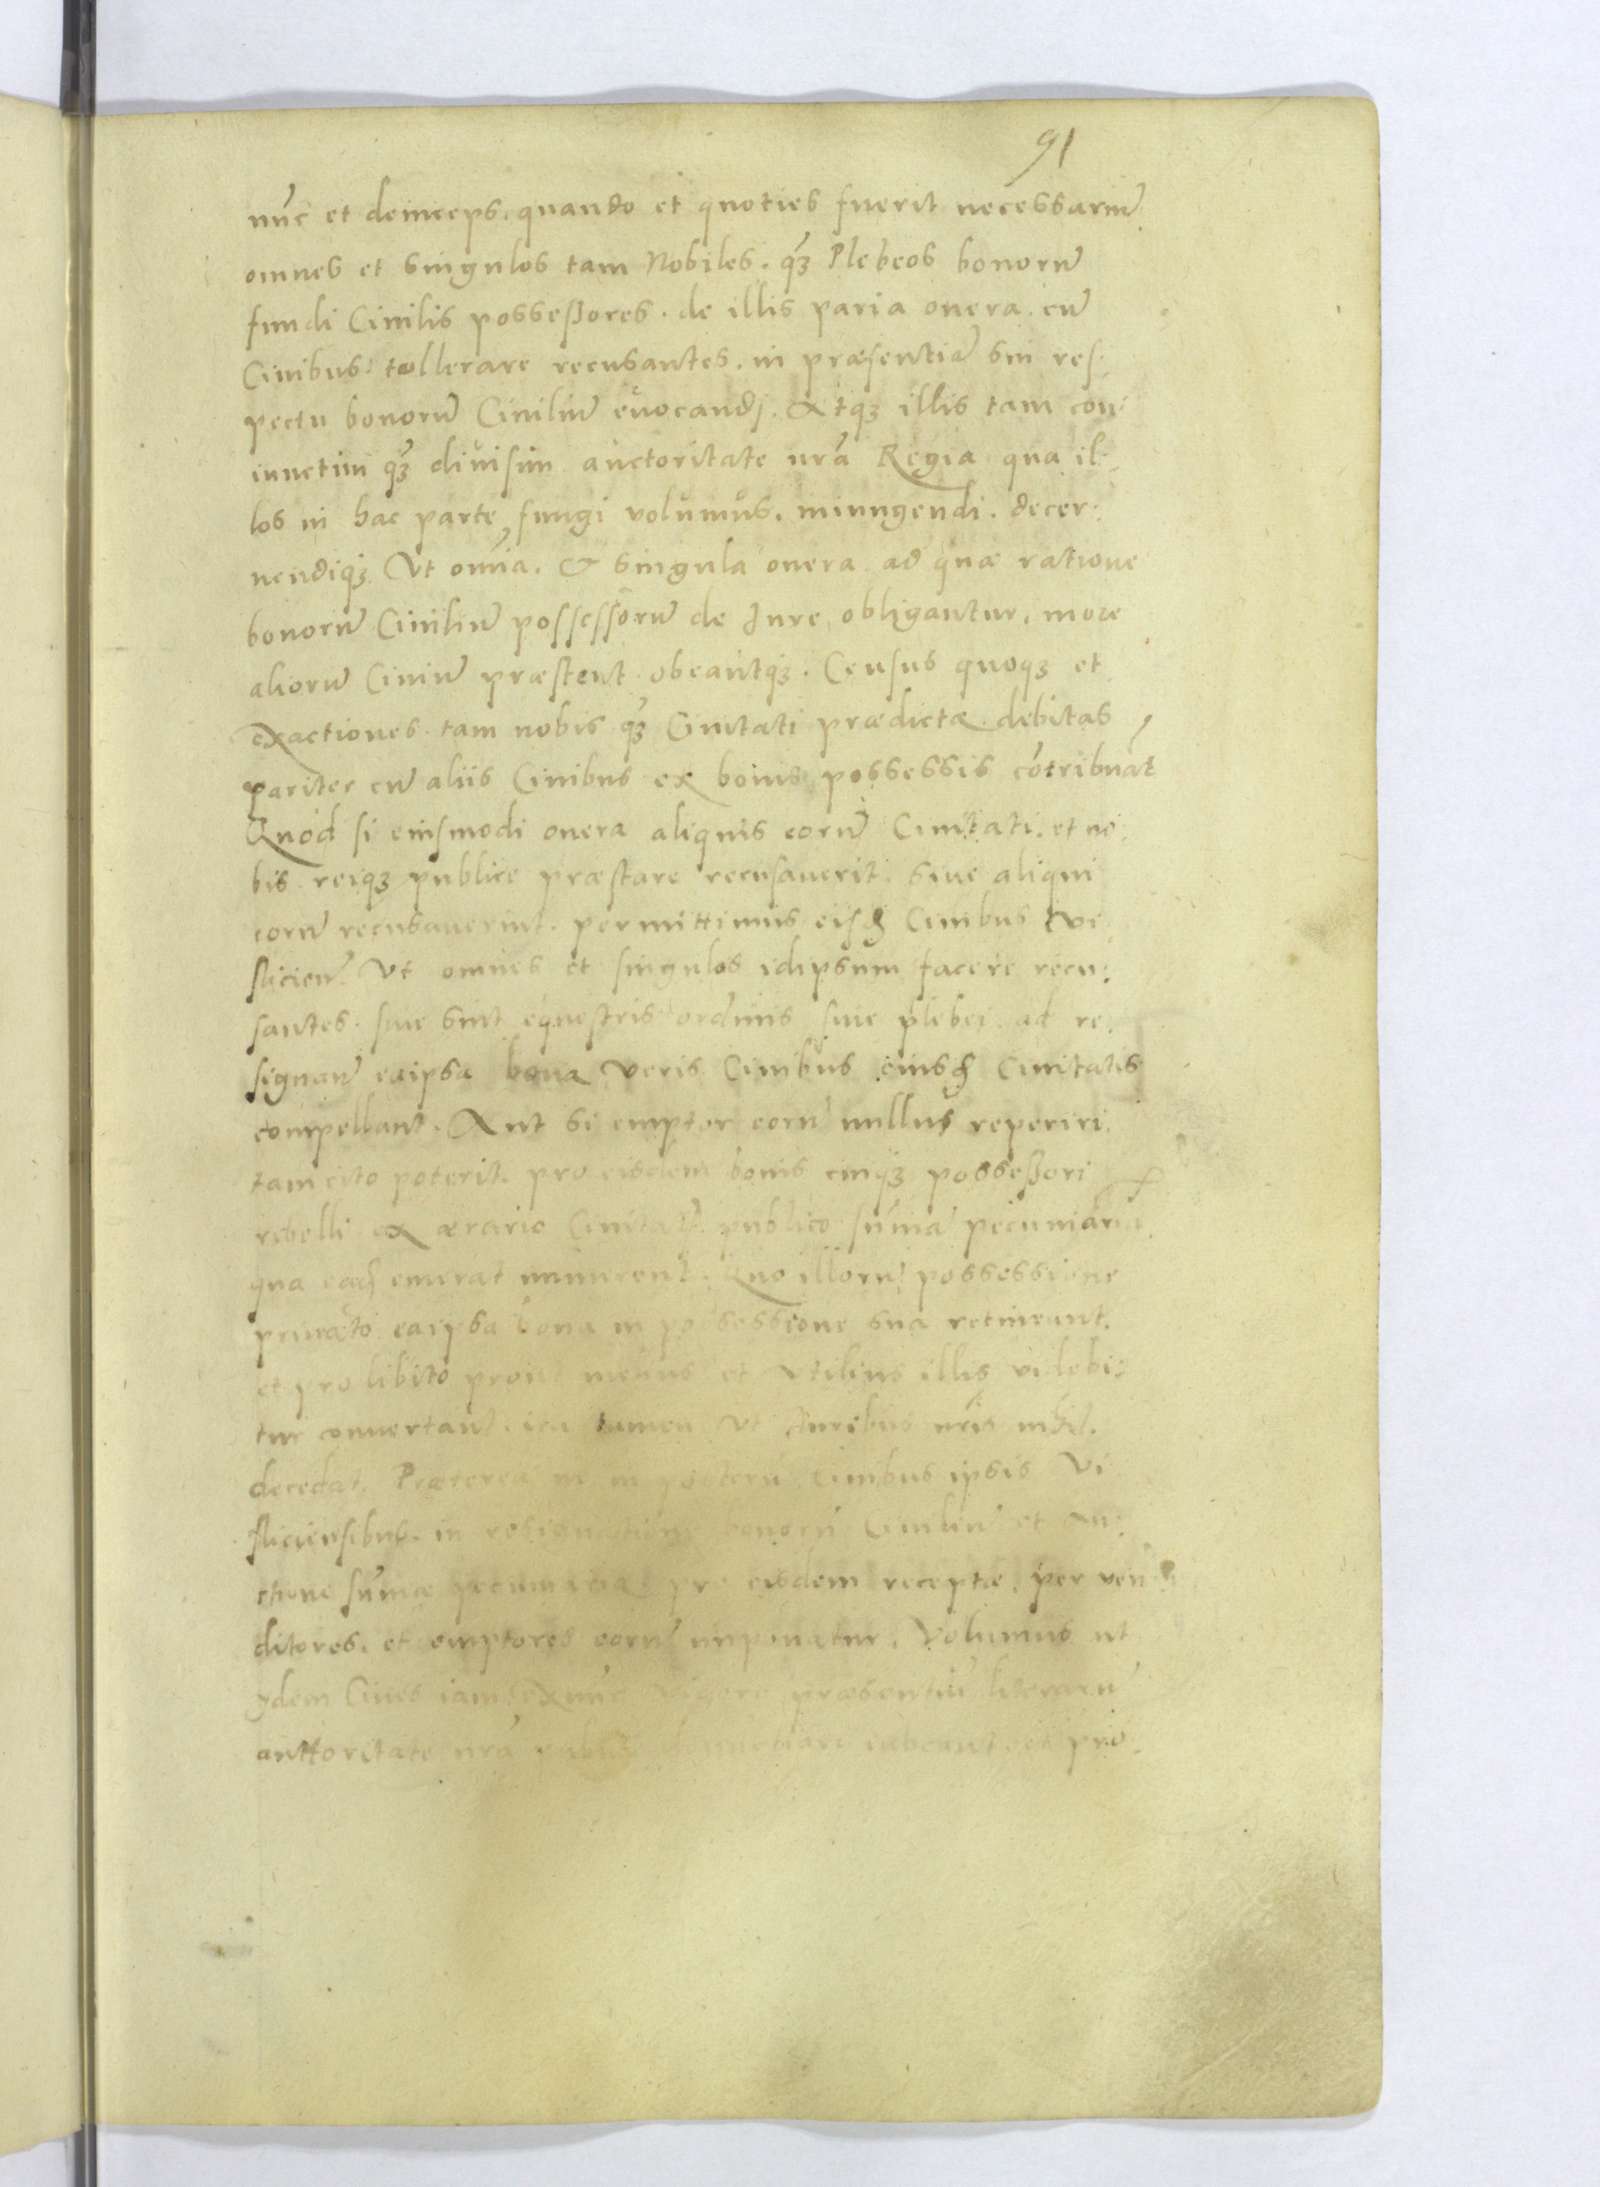 91
nūc et deinceps. quando et quoties fuerit necessariū
omnes et singulos tam Nobiles. qȝ̄ Plebeos bonorū
fundi Ciuilis possessores. de illis paria onera cū
Ciuibus: tollerare recusantes. in præsentiā sui res:
pectu bonorū Ciuiliū euocandj. Atqȝ illis tam con:
iunctim qȝ̄ diuisim auctoritate nrā Regia qua il:
los in hac parte fungi volumus. iniungendi. decer:
nendiqȝ Vt omīa. & singula onera ad quæ ratione
bonorū Ciuiliū possessorū de Jure obligantur, more
aliorū Ciuiū præstent obeantqȝ. Census quoqȝ et
exactiones tam nobis qȝ̄ Ciuitati prædictæ debitas,
pariter cū aliis Ciuibus ex bonis possessis cōtribuāt
Quod si eiusmodi onera aliquis eorū Ciuitati. et no:
bis reiqȝ publice præstare recusauerit. siue aliqui
eorū recusauerint. permittimus eisđ Ciuibus Vi
slicień Vt omnes et singulos idipsum facere recu:
santes. siue sint equestris ordinis siue plebei ad re:
signanď eaipsa bona veris Ciuibus eiusđ Ciuitatis
compellant. Aut si emptor eorū nullus reperiri
tam cito poterit. pro eisdem bonis cuiqȝ possessori
rebelli ex ærario Ciuitatis publico sūma pecuniaria
qua eađ emerat numerent. Quo illorū possessione
priuato eaipsa bona in possessione sua retineant.
et pro libito prout melius et vtilius illis videbi:
tur conuertant. ita tamen vt Juribus nrīs nihil
decedat. Præterea ne in posterū Ciuibus ipsis Vi
sliciensibus. in resignatione bonorū Ciuiliū et
ctione sūmæ pecuniariæ pro eisdem receptæ. per ven
ditores. et emptores eorū imponatur. Volumus ut
ijdem Ciues iam exnūc vigore præsentiū literarū
auttoritate nrā iubeant. et pro: